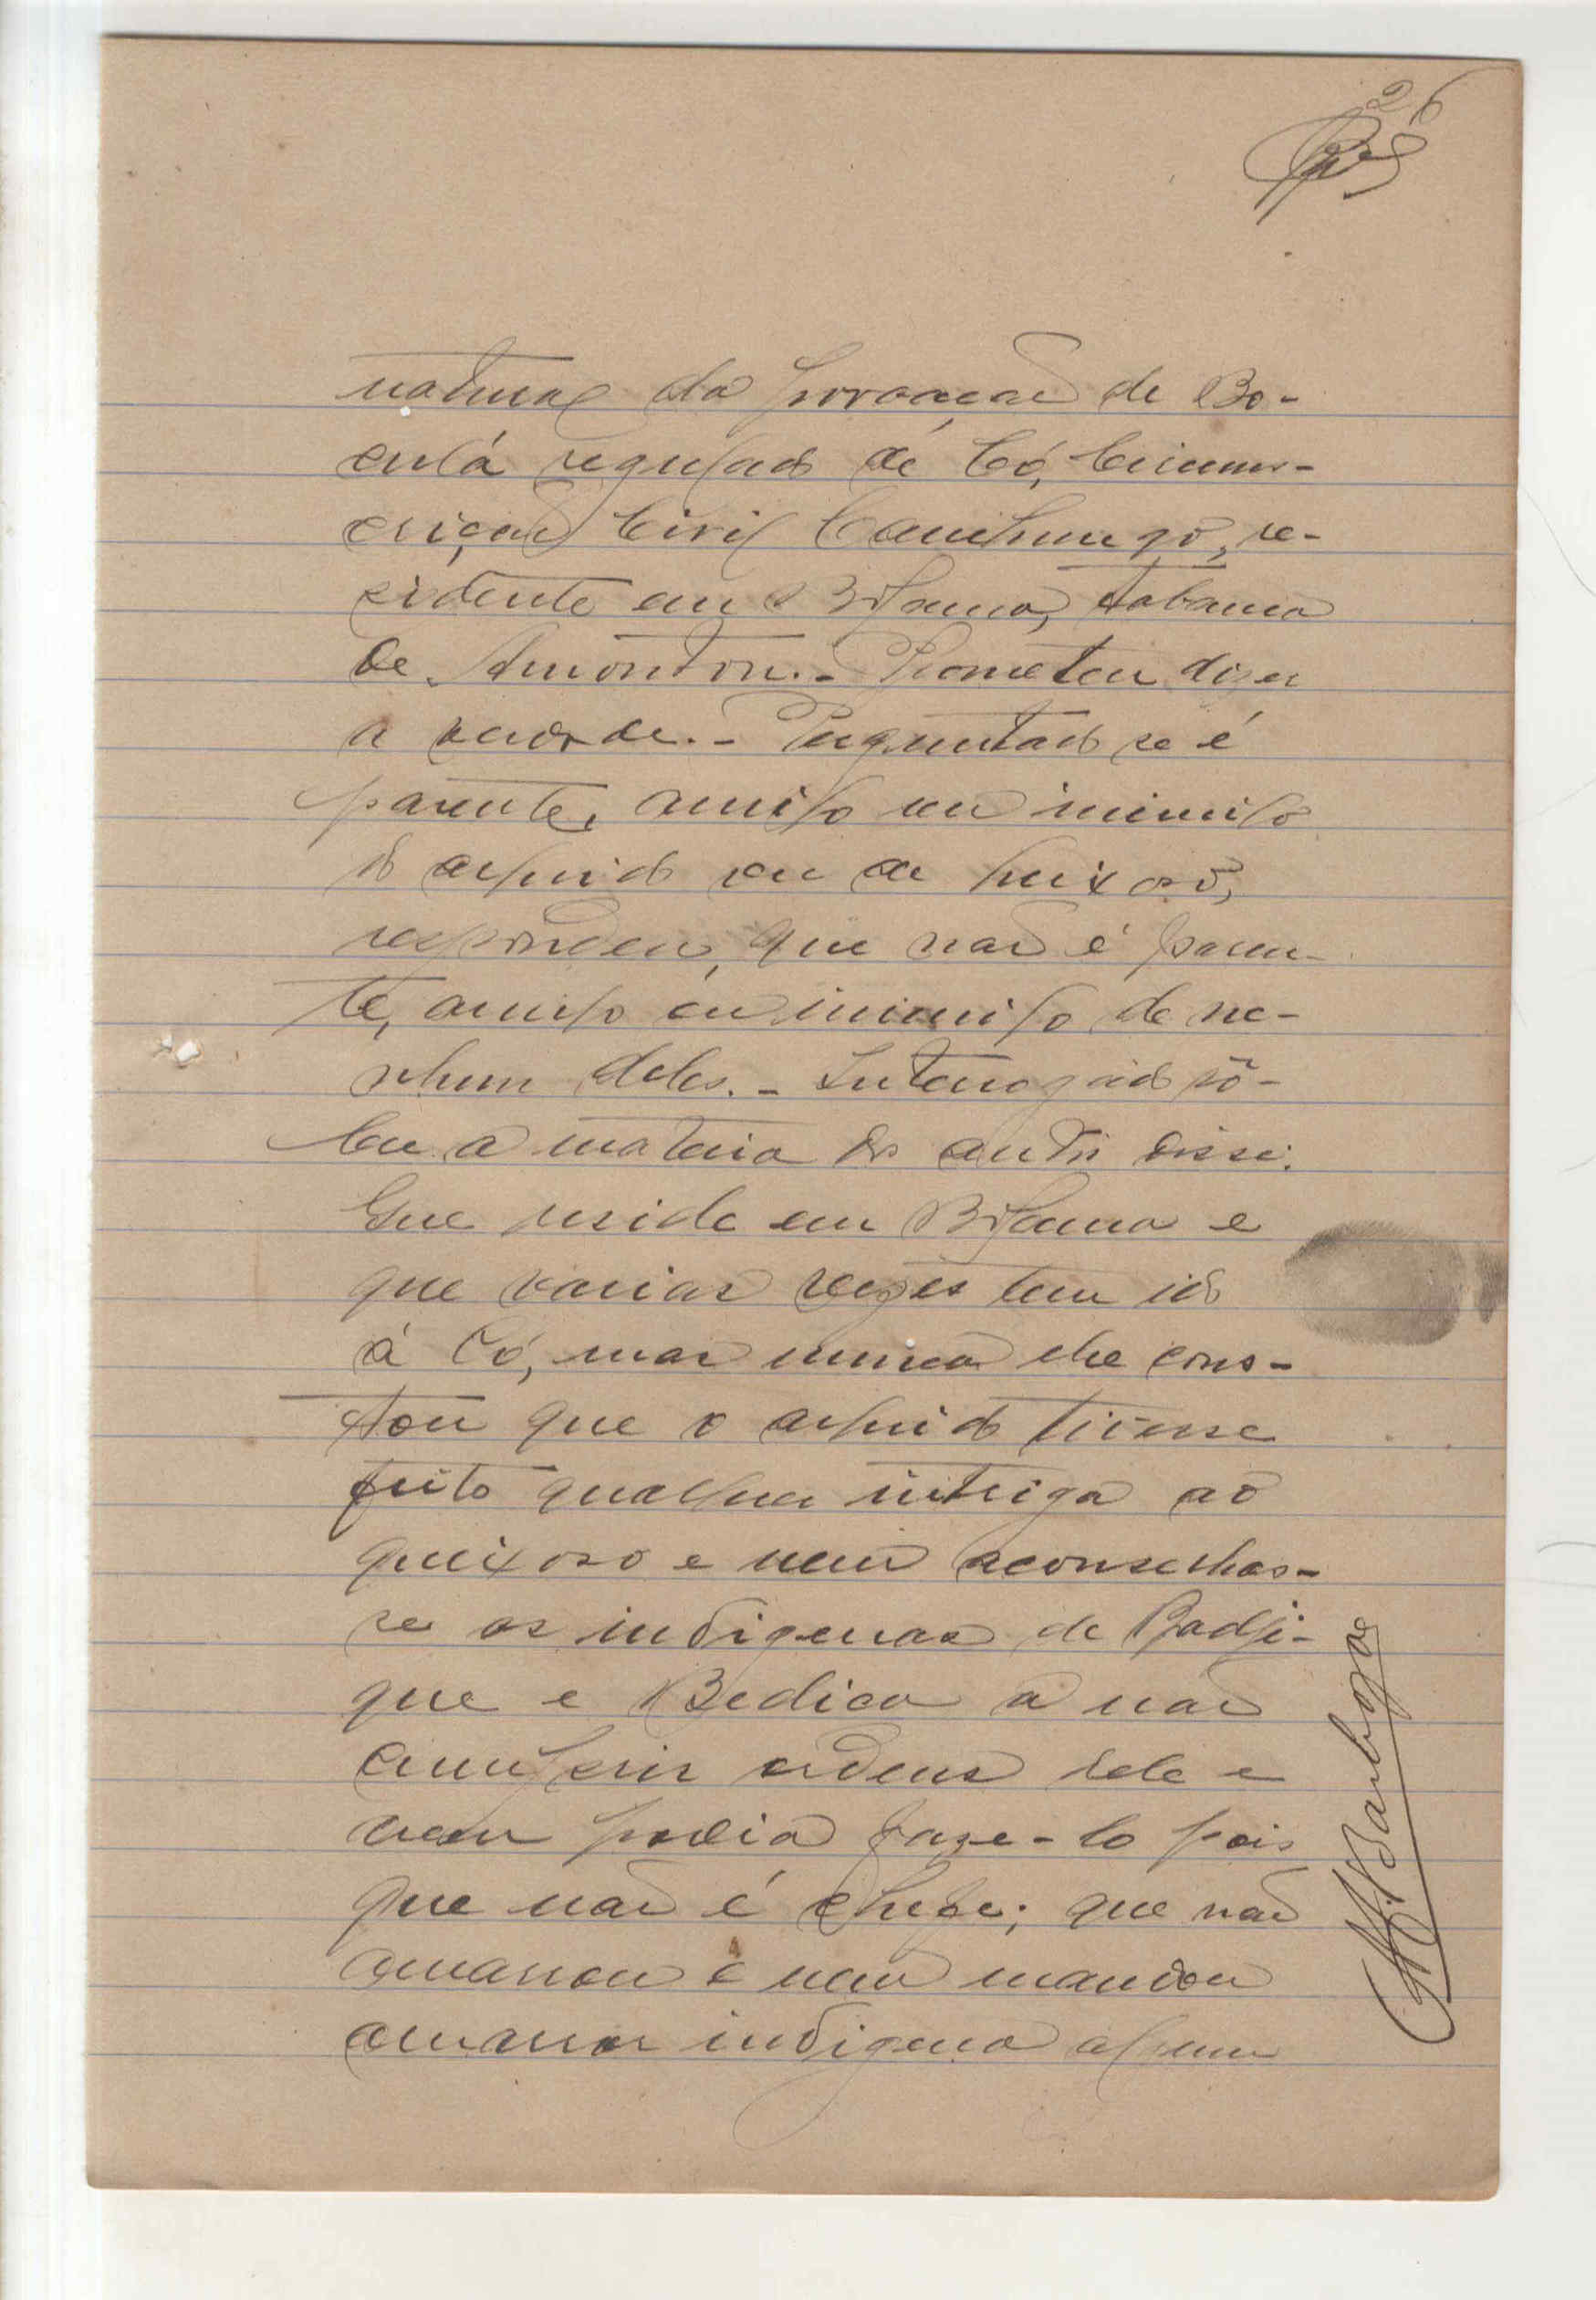 26
natural da povoação de Bo-
culá regulado de Có, Circuns-
crição Civil Canchungo, re-
sidente em Bijama, tabanca
de Amonton. - Prometeu dizer
a verdade. - Perguntado se é
parente, amigo ou inimigo
do arguido ou do queixoso,
respondeu, que não é paren-
te, amigo ou inimigo de ne-
nhum deles. - Interrogado sô-
bre a materia dos autos disse:
Que reside em Bijama e
que varias vezes tem ido
á Có, mas nunca lhe cons-
tou que o arguido tivesse
feito qualquer intriga ao
queixoso e nem aconselhas-
se os indigenas de Badji-
que e Bedica a não
cumprir ordens dele e
nem podia faze-lo pois
que não é chefe; que não
amarrou e nem mandou
amarrar indigena algum
Barbosa